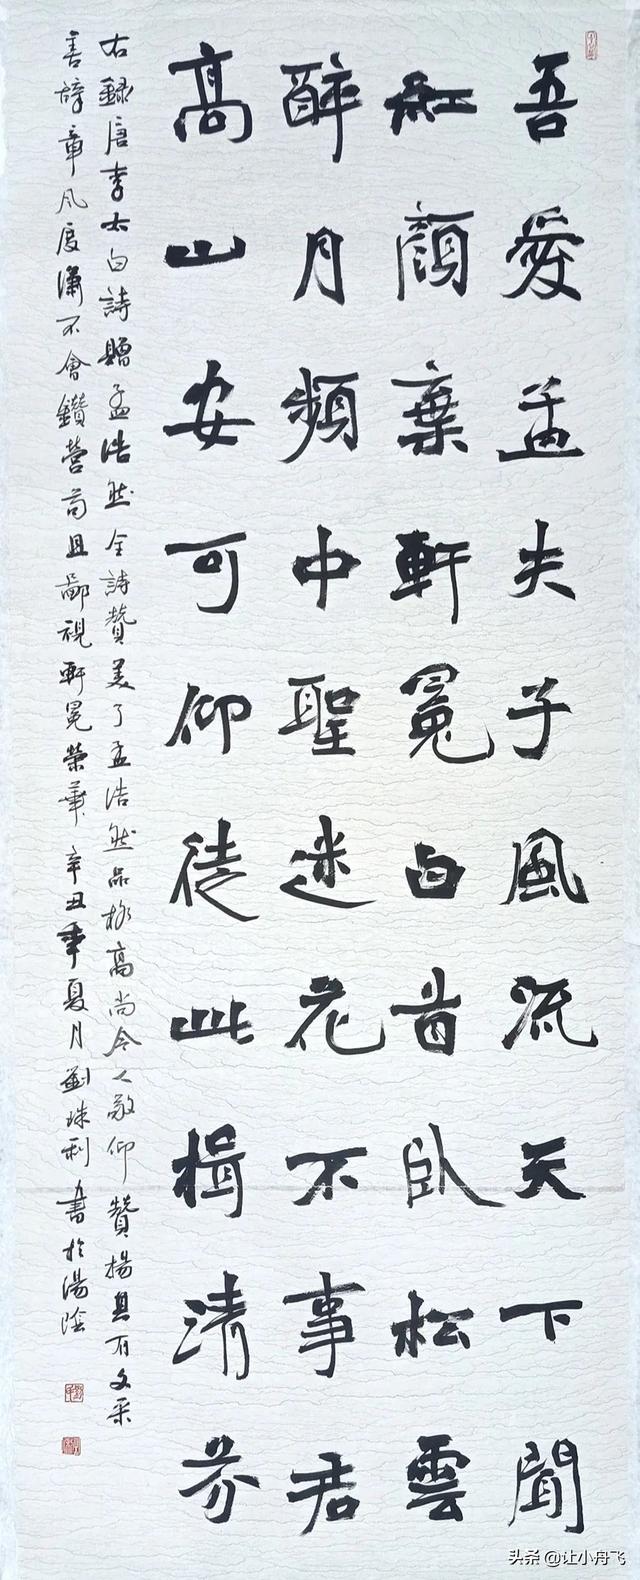 吾愛孟夫子風流天下聞
紅顔棄軒冕白首卧松雲
醉月頻中聖迷花不事君
高山安可仰徒此楫清芬
右録唐李太白詩贈孟浩然全詩贊美了孟浩然品格高尚令人敬仰贊楊具有文采
善辭章风度瀟不會鑽營苟且鄙視軒冕榮華辛丑年夏月劉珠利書於湯陰
头条 @让小舟飞